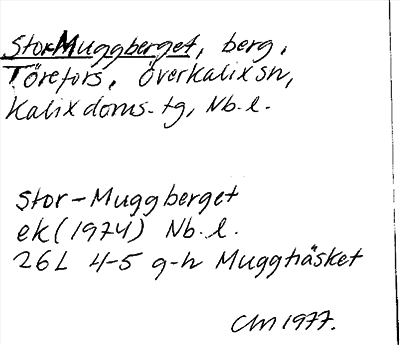 StorMuggberget, berg.
Törefors, överkalix sn,
Kalix doms. tg, Nb. l.
Stor-Muggberget
ek (1974) Nb. l.
26L 4-5 g-h Muggträsket
CM 1977.